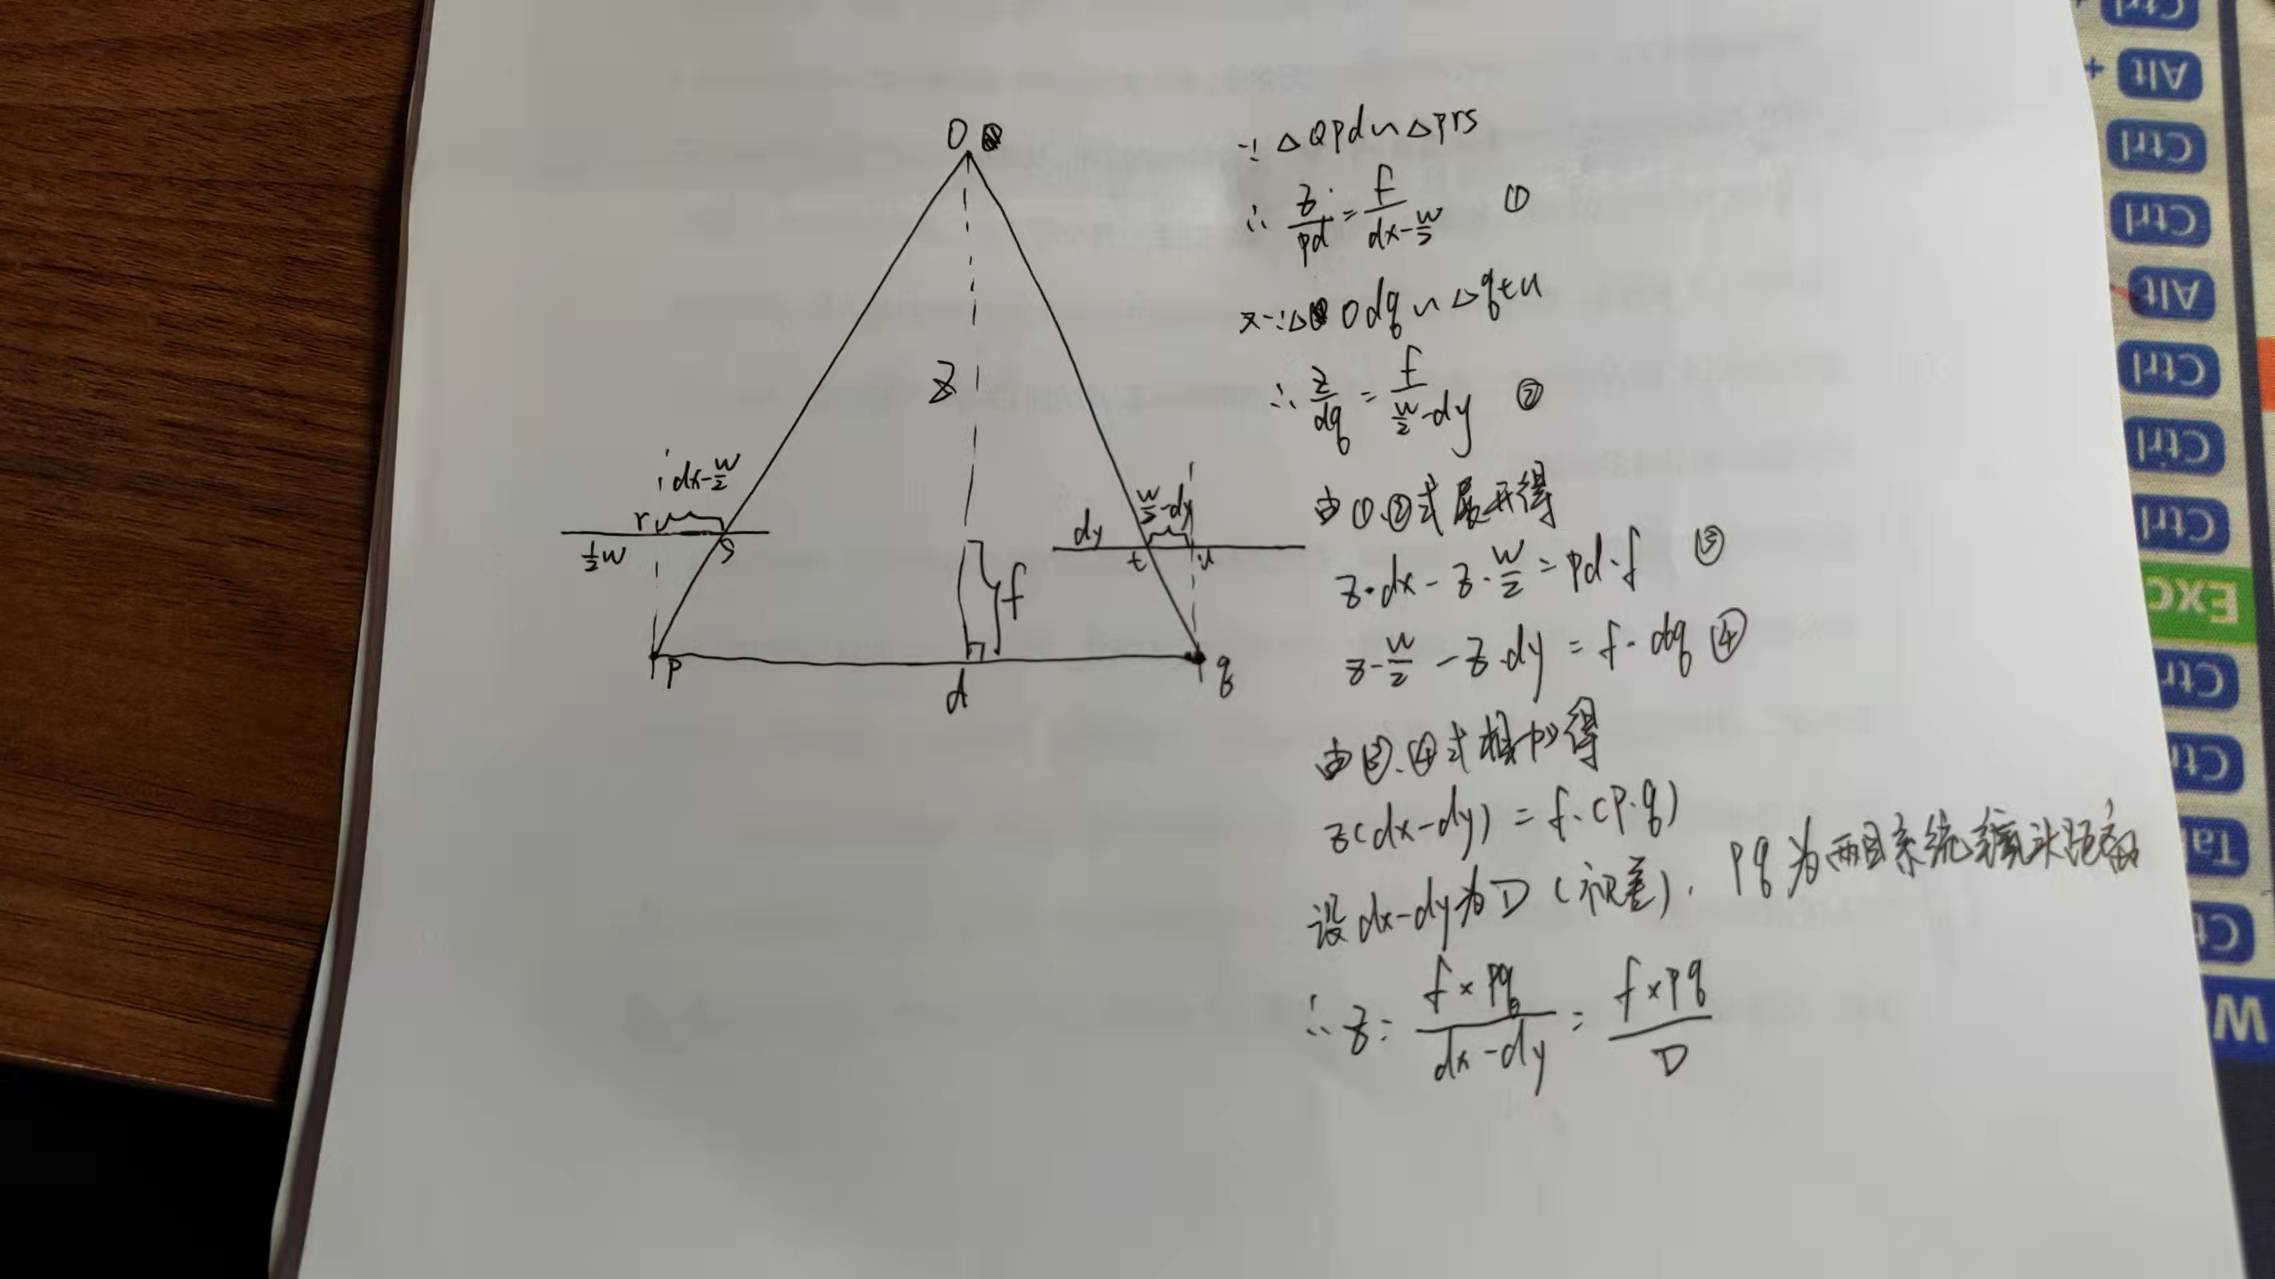 O
Z
dx-w/2
r
s
½w
p
d
f
dy
w/2-dy
t
u
q
∵△Opd∽△prs
∴ z/pd = f/(dx-w/2) ①
又∵△Odq∽△qtu
∴ z/dq = f/(w/2-dy) ②
由①.②式展开得
z·dx-z·w/2=pd·f ③
z·w/2-z·dy=f·dq ④
由③.④式相加得
z(dx-dy)=f·(p·q)
设dx-dy为D(视差), pq为两目系统镜头距离
∴z=(f×pq)/(dx-dy)=(f×pq)/D
Ctrl
Alt +
Ctrl
Ctrl
Alt
Ctrl
Ctrl
Ctrl
Exc
Ctr
Ctr
Ta
Ct
W